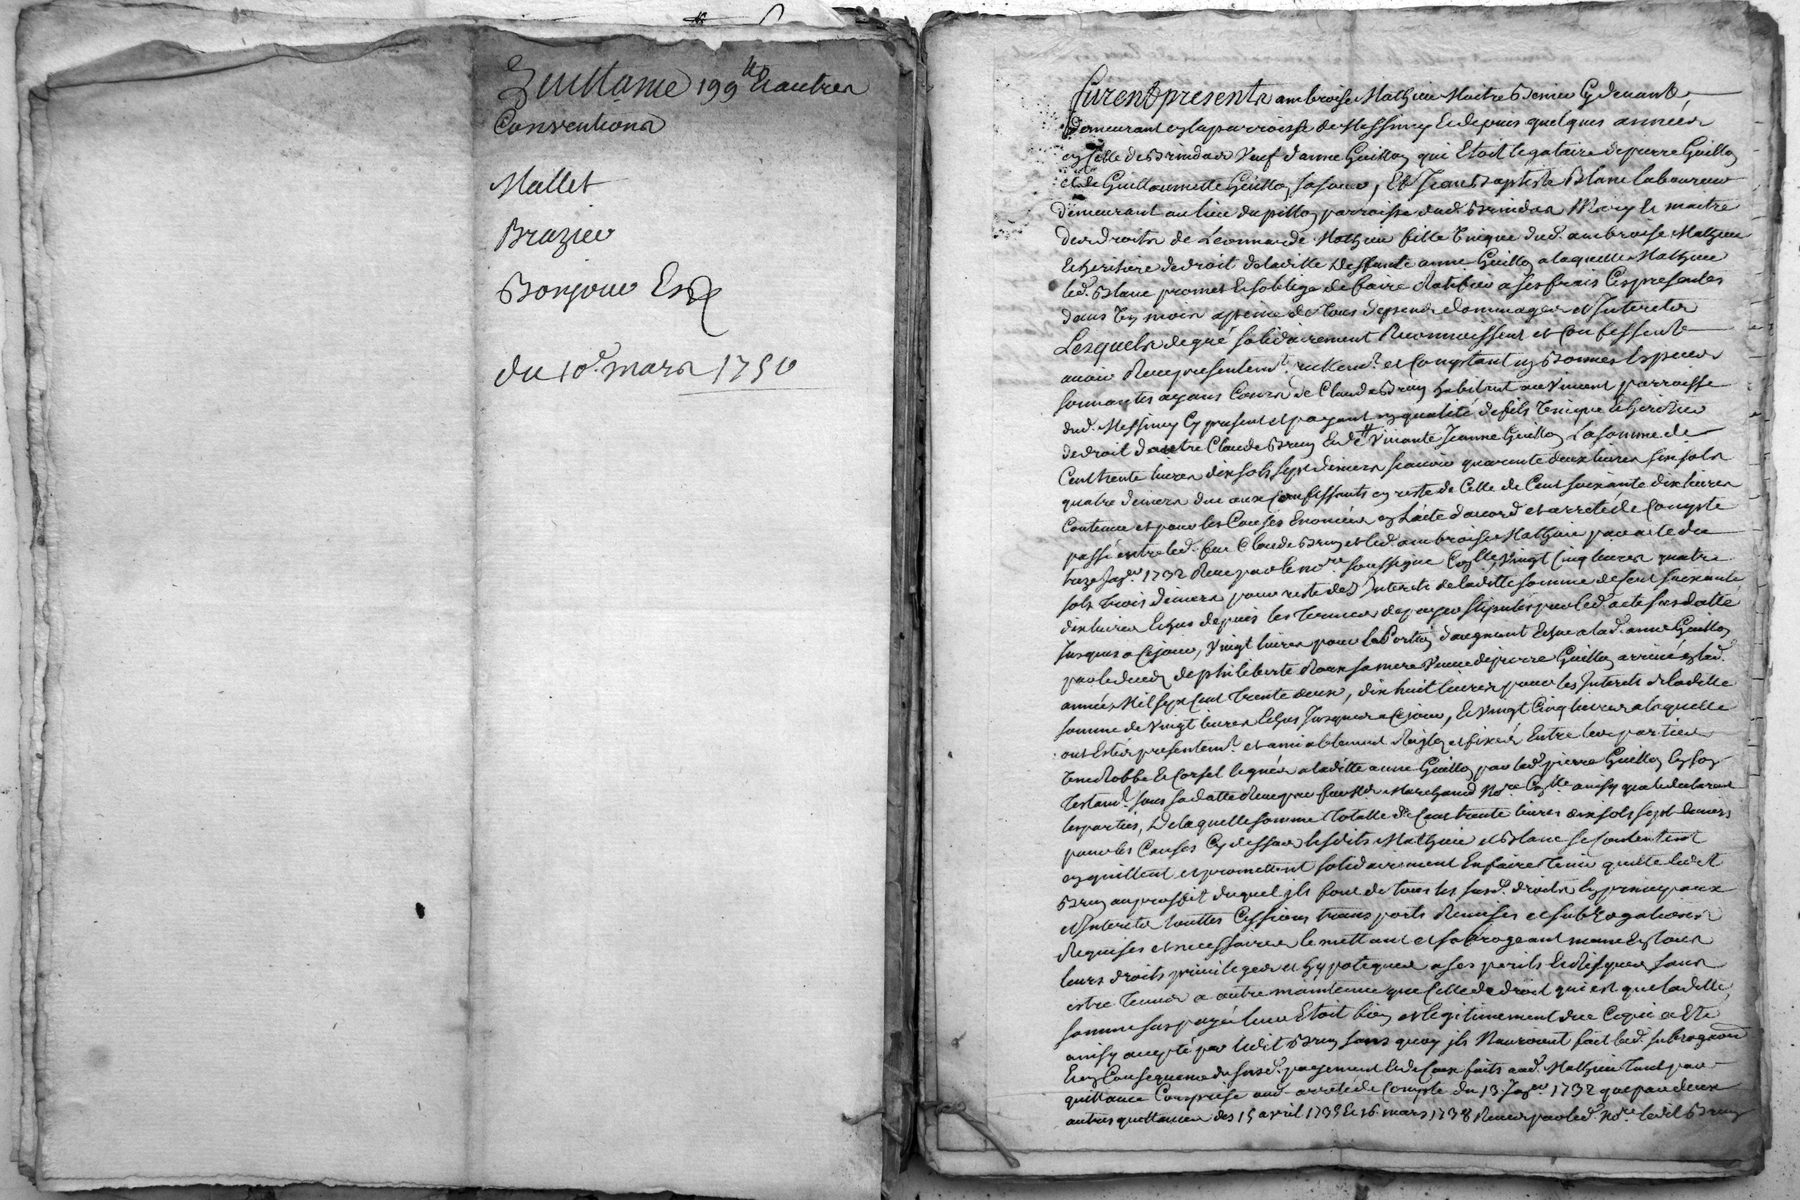 Quittance 199 ₶ & autres
Conventions
Mallet
Brazier
Bonjour Esr
du 10e. mars 1750
furent presents ambroise Mathieu Maitre cy devant
demeurant en la parroisse de Messimy et depuis quelques années
en celle de Brindas veuf d'anne Guillon qui Etoit legataire de pierre Guillon
et de Guillaumette Guillon sa soeur, Et Jean Baptiste Blanc laboureur
demeurant au lieu du pillon parroisse dud. Brindas Mary & maitre
des droits de Leonnarde Mathieu fille unique dud. ambroise Mathieu
& heritiere de droit de laditte deffunte anne Guillon a laquelle Mathieu
led. Blanc promet & s'oblige de faire Ratifier a ses frais Ces presentes
dans un mois a peine de tous depends dommages et Interets
Lesquels de gré solidairement Reconnoissent et Confessent
avoir Receu presentemt. reellemt. et Comptant en Bonnes Especes
sonnantes ayans Cours de Claude Brun habitant au parroisse
dud. Messimy Cy present et payant en qualité de fils unique & heritier
de droit d'autre Claude Brun & de vivante Jeanne Guillon La somme de
Cent trente livres dix sols sept deniers scavoir quarente deux livres six sols
quatre deniers due aux Confessants en reste de Celle de Cent soixante dix livres
Contenue et pour les Causes Enoncées en L'acte d'accord et arreté de Compte
passé entre led. feu Claude Brun et led. ambroise Mathieu par acte du
treze Janer 1732 Receu par le nore. soussigné Vingt Cinq livres quatre
sols trois deniers pour reste des Interets de laditte somme de Cent soixante
dix livres Echus depuis les termes de payer stipulés par led. acte susdatté
Jusques a Ce jour, Vingt livres pour la Portion d'augment Echue a lad. anne Guillon
par le deceds de philiberte Roux sa mere Veuve de pierre Guillon arrivé en lad.
année Mil sept Cent trente deux, dix huit livres pour les Interets de laditte
somme de Vingt livres Echus Jusques a Ce jour, & Vingt Cinq livres a laquelle
ont Estés presentemt. et amiablement Reiglés et fixés Entre les parties
une Robbe & Corset legués a laditte anne Guillon par led. pierre Guillon en son
Testamt. sous sa datte Receu par feu Me Marchand Nore. ainsy que le declarent
les parties, De laquelle somme totalle de Cent trente livres dix sols sept deniers
pour les Causes Cy dessus lesdits Mathieu et Blanc se Contentent
en quittent et promettent solidairement En faire tenir quitte ledit
Brun au proffit duquel ils font de tous les susd. droits En principaux
et Interets touttes Cessions transports Remises et subrogations
Requises et necessaires le mettant et subrogeant mesme En tous
leurs droits privileges et hypoteques a ses perils & Risques sans
estre tenus a autre maintenue que Celle de droit qui est que laditte
somme sus payée leur Etoit bien et legitimement due Ce qui a Eté
ainsy accepté par ledit Brun sans quoy ils N'auroient fait lad. subrogaon
& en Consequence du susd. payement & de Ceux faits aud. Mathieu tant par
quittance Comprise aud. arreté de Compte du 13 Janer 1732 que par deux
autres quittances des 15 avril 1735 & 16 mars 1738 Receues par led. Nore. ledit Brun